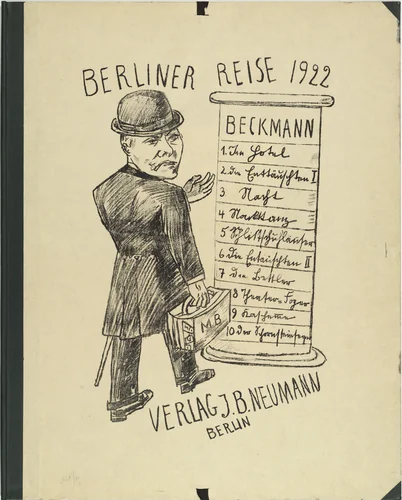 BERLINER REISE 1922
BECKMANN
1. im Hotel
2. die Enttäuschten I
3 Nacht
4 Nackttanz
5 Schlittschuhläufer
6 die Entäuschten II
7 die Bettler
8 Theater Foyer
9 Kaschemme
10 Der Schornsteinfeger
M.B.
VERLAG J.B. NEUMANN
BERLIN